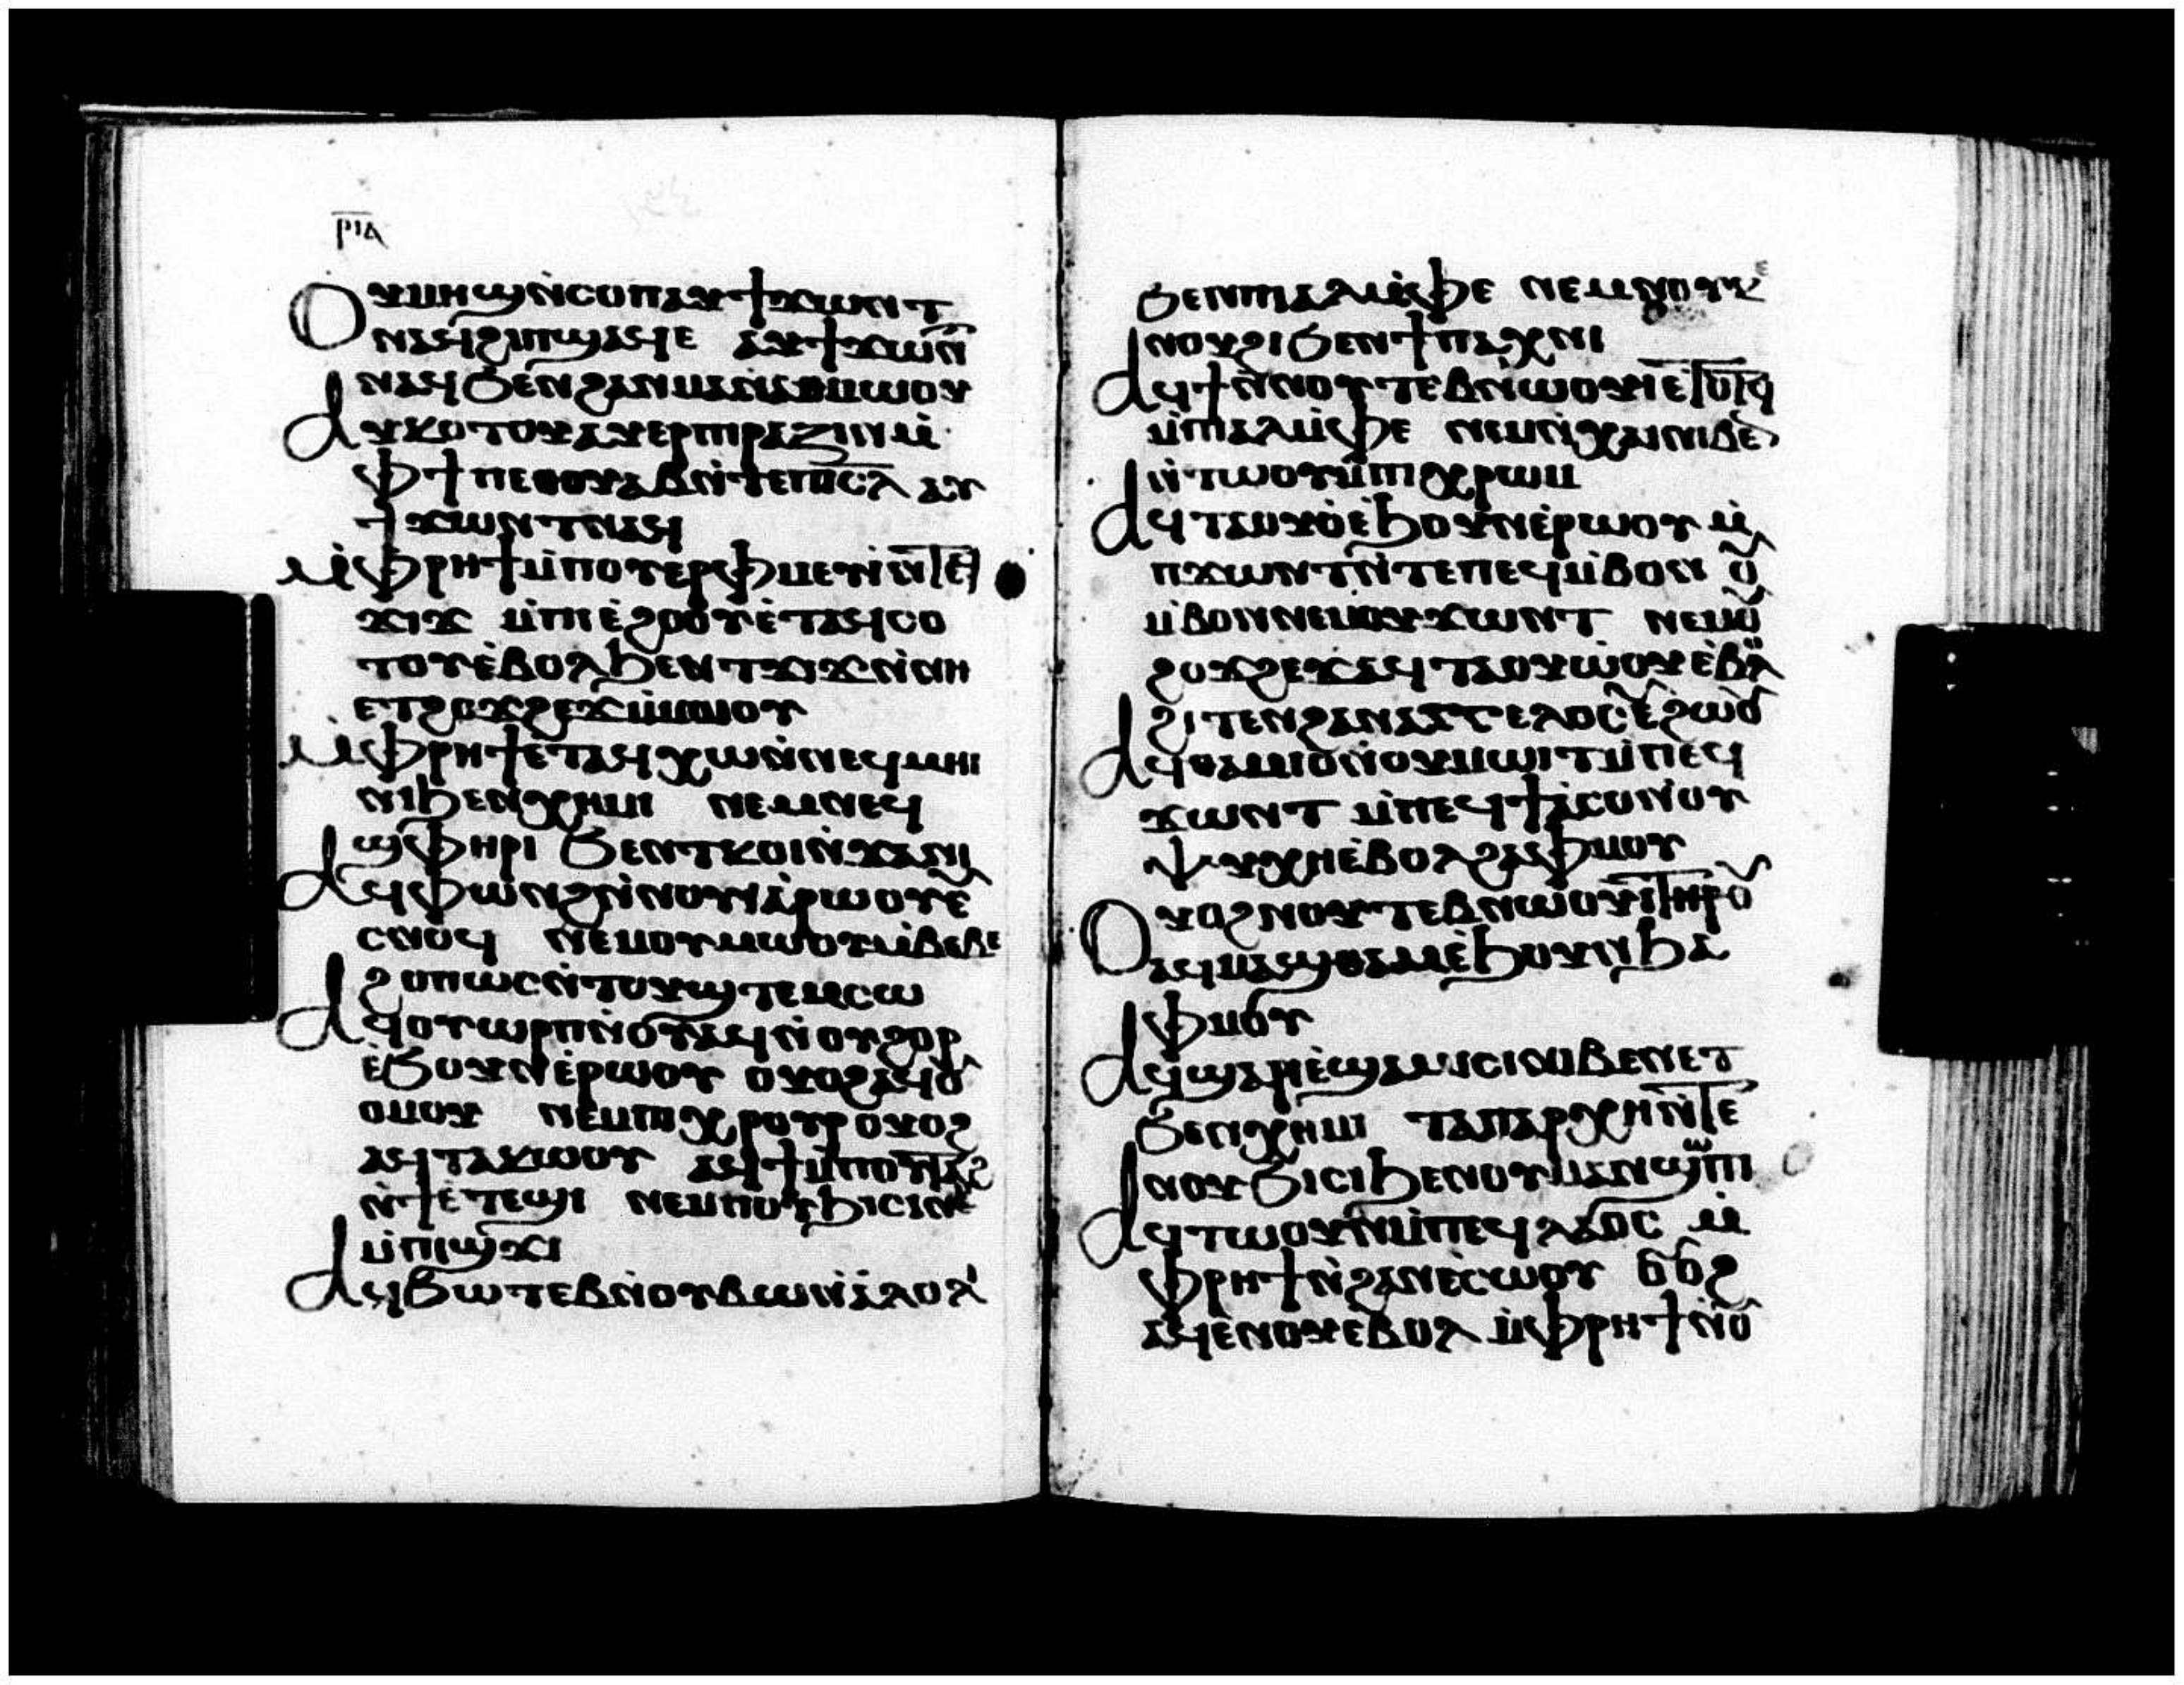 ⲣⲓⲁ
Ⲟⲩⲙⲏϣ ⲛ̀ⲥⲟⲡ ⲁⲩϯϫⲱⲛⲧ
ⲛⲁϥ ϩⲓ ⲡϣⲁϥⲉ ⲁⲩϯϫⲱⲛ̅
ⲛⲁϥ ϧⲉⲛ ϩⲁⲛⲙⲁⲛ̀ⲁⲑⲙⲱⲟⲩ
Ⲁⲩⲕⲟⲧⲟⲩ ⲁⲩⲉⲣⲡⲓⲣⲁⲍⲓⲛ ⲙ̀
ⲫϯ ⲡⲉⲑⲟⲩⲁⲃ ⲛ̀ⲧⲉ ⲡⲓⲥ̅ⲗ ⲁⲩ
ϯϫⲱⲛⲧ ⲛⲁϥ
Ⲙ̀ⲫⲣⲏϯ ⲙ̀ⲡⲟⲩⲉⲣⲫⲙⲉⲩⲓ ⲛ̀ⲧⲉϥ
ϫⲓϫ ⲙ̀ⲡⲓⲉ̀ϩⲟⲟⲩ ⲉ̀ⲧⲁϥⲥⲟ
ⲧⲟⲩ ⲉ̀ⲃⲟⲗ ϧⲉⲛ ⲧϫⲓϫ ⲛ̀ⲛⲏ
ⲉⲧϩⲟϫϩⲉϫ ⲙ̀ⲙⲱⲟⲩ
Ⲙ̀ⲫⲣⲏϯ ⲉⲧⲁϥⲭⲱ ⲛ̀ⲛⲉϥⲙⲏⲓ
ⲛⲓ ϧⲉⲛ ⲭⲏⲙⲓ ⲛⲉⲙ ⲛⲉϥ
ϣⲫⲏⲣⲓ ϧⲉⲛ ⲧⲕⲟⲓ ⲛ̀ϫⲁⲛⲓ
Ⲁϥⲫⲱⲛϩ ⲛ̀ⲛⲟⲩⲓⲁⲣⲱⲟⲩ ⲉ̀
ⲥⲛⲟϥ ⲛⲉⲙ ⲟⲩⲙⲱⲟⲩ ⲙ̀ⲃⲉⲃⲉ
ϩⲟⲡⲱⲥ ⲛ̀ⲧⲟⲩϣⲧⲉⲙⲥⲱ
Ⲁϥⲟⲩⲱⲣⲡ ⲛ̀ⲟⲩⲁϥ ⲛ̀ⲟⲩϩⲟⲣ
ⲉ̀ϧⲟⲩⲛ ⲉ̀ⲣⲱⲟⲩ ⲟⲩⲟϩ ⲁϥⲟ̅
ⲟⲙⲟⲩ ⲛⲉⲙ ⲡⲓⲭⲣⲟⲩⲣ ⲟⲩⲟϩ
ⲁϥⲧⲁⲕⲱⲟⲩ ⲁϥϯ ⲙ̀ⲡⲟⲩⲧⲁϩ
ⲛ̀ϯⲉ̀ⲧⲉϣⲓ ⲛⲉⲙ ⲡⲟⲩϧⲓⲥⲓ ⲛⲉ
ⲙ̀ⲡⲓϣϫⲓ
Ⲁϥϧⲱⲧⲉⲃ ⲛ̀ⲟⲩⲃⲱ ⲛ̀ⲁⲗⲟⲗⲓ
ϧⲉⲛ ⲡⲓⲁⲗⲙ̀ⲫⲉ ⲛⲉⲙ ⲛⲟⲩⲕⲉ
ⲛⲟⲩϩⲓ ϧⲉⲛ ϯⲡⲁⲭⲛⲓ
Ⲁϥϯ ⲛ̀ⲛⲟⲩⲧⲉⲃⲛⲱⲟⲩⲓ ⲉ̀ⲧⲟⲧϥ
ⲙ̀ⲡⲓⲁⲗⲙ̀ⲫⲉ ⲛⲉⲙ ⲛⲏ ⲭⲁⲓ ⲛⲓⲃⲉ
ⲛ̀ⲧⲱⲟⲩ ⲙ̀ⲡⲓⲭⲣⲱⲙ
Ⲁϥⲧⲁⲟⲩⲟ ⲉ̀ϧⲟⲩⲛ ⲉ̀ⲣⲱⲟⲩ ⲙ̀
ⲡϫⲱⲛⲧ ⲛ̀ⲧⲉ ⲡⲉϥⲙ̀ⲃⲟⲛ ⲟ̅
ⲙ̀ⲃⲟⲛ ⲛⲉⲙ ⲟⲩϫⲱⲛⲧ ⲛⲉⲙ ⲟ̅
ϩⲟϫϩⲉϫ ⲁϥⲧⲁⲟⲩⲱⲟⲩ ⲉ̀ⲃⲗ
ϩⲓⲧⲉⲛ ϩⲁⲛⲁⲅⲅⲉⲗⲟⲥ ⲉⲩϩⲱⲟⲩ
Ⲁϥⲑⲁⲙⲓⲟ ⲛ̀ⲟⲩⲙⲱⲓⲧ ⲙ̀ⲡⲉϥ
ϫⲱⲛⲧ ⲙ̀ⲡⲉϥϯⲁⲥⲟ ⲛ̀ⲟⲩ
ⲯⲩⲭⲏ ⲉ̀ⲃⲟⲗ ϩⲁ ⲫⲙⲟⲩ
Ⲟⲩⲟϩ ⲛⲟⲩⲧⲉⲃⲛⲱⲟⲩⲓ ⲧⲏⲣⲟⲩ
ⲁϥⲙⲁϣⲑⲁⲙ ⲉ̀ϧⲟⲩⲛ ϧⲁ
ⲫⲙⲟⲩ
Ⲁϥϣⲁⲣⲓ ⲉ̀ϣⲁⲙⲓⲥⲓ ⲛⲓⲃⲉⲛ ⲉⲧ
ϧⲉⲛ ⲭⲏⲙⲓ ⲧⲁⲡⲁⲣⲭⲏ ⲛ̀ⲧⲉ
ⲛⲟⲩϧⲓⲥⲓ ϧⲉⲛ ⲟⲩⲙⲁⲛϣⲱⲡⲓ
Ⲁϥⲧⲱⲟⲩⲛ ⲙ̀ⲡⲉϥⲗⲁⲟⲥ ⲙ̀
ⲫⲣⲏϯ ⲛ̀ϩⲁⲛⲉ̀ⲥⲱⲟⲩ ⲟⲩⲟϩ
ⲁϥⲉⲛⲟⲩ ⲉ̀ⲃⲟⲗ ⲙ̀ⲫⲣⲏϯ ⲛ̀ⲟ̅